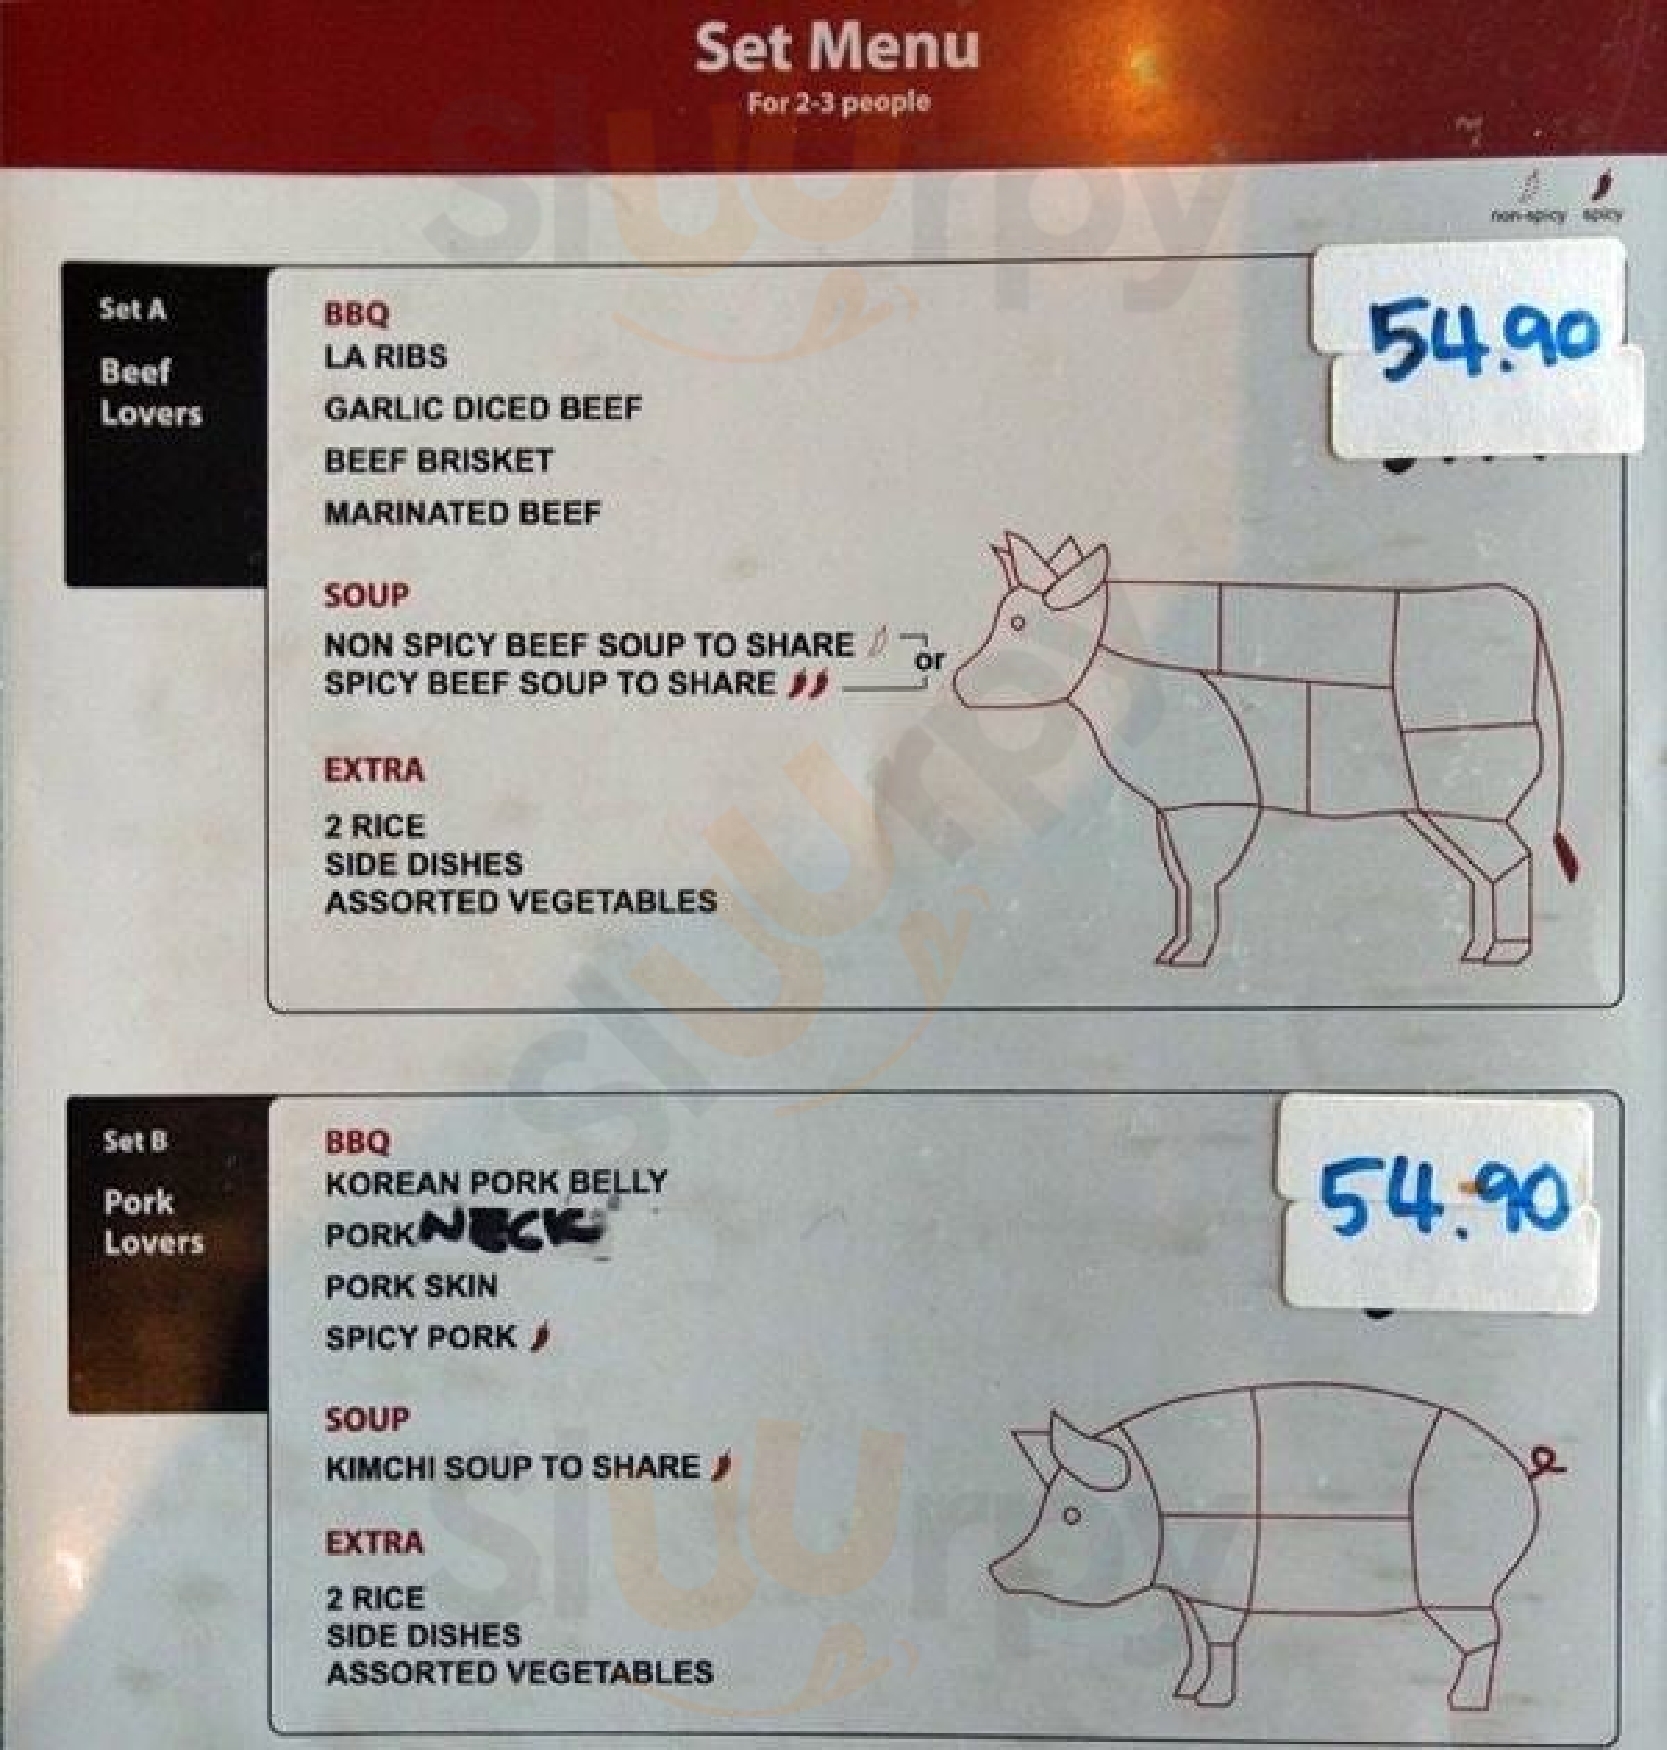 Set Menu
For 2-3 people
non-spicy spicy
Set A
Beef
Lovers
54.90
BBQ
LA RIBS
GARLIC DICED BEEF
BEEF BRISKET
MARINATED BEEF
SOUP
NON SPICY BEEF SOUP TO SHARE
or
SPICY BEEF SOUP TO SHARE
EXTRA
2 RICE
SIDE DISHES
ASSORTED VEGETABLES
Set B
Pork
Lovers
54.90
BBQ
KOREAN PORK BELLY
PORK NECK
PORK SKIN
SPICY PORK
SOUP
KIMCHI SOUP TO SHARE
EXTRA
2 RICE
SIDE DISHES
ASSORTED VEGETABLES
sluurpy
sluurpy
sluurpy